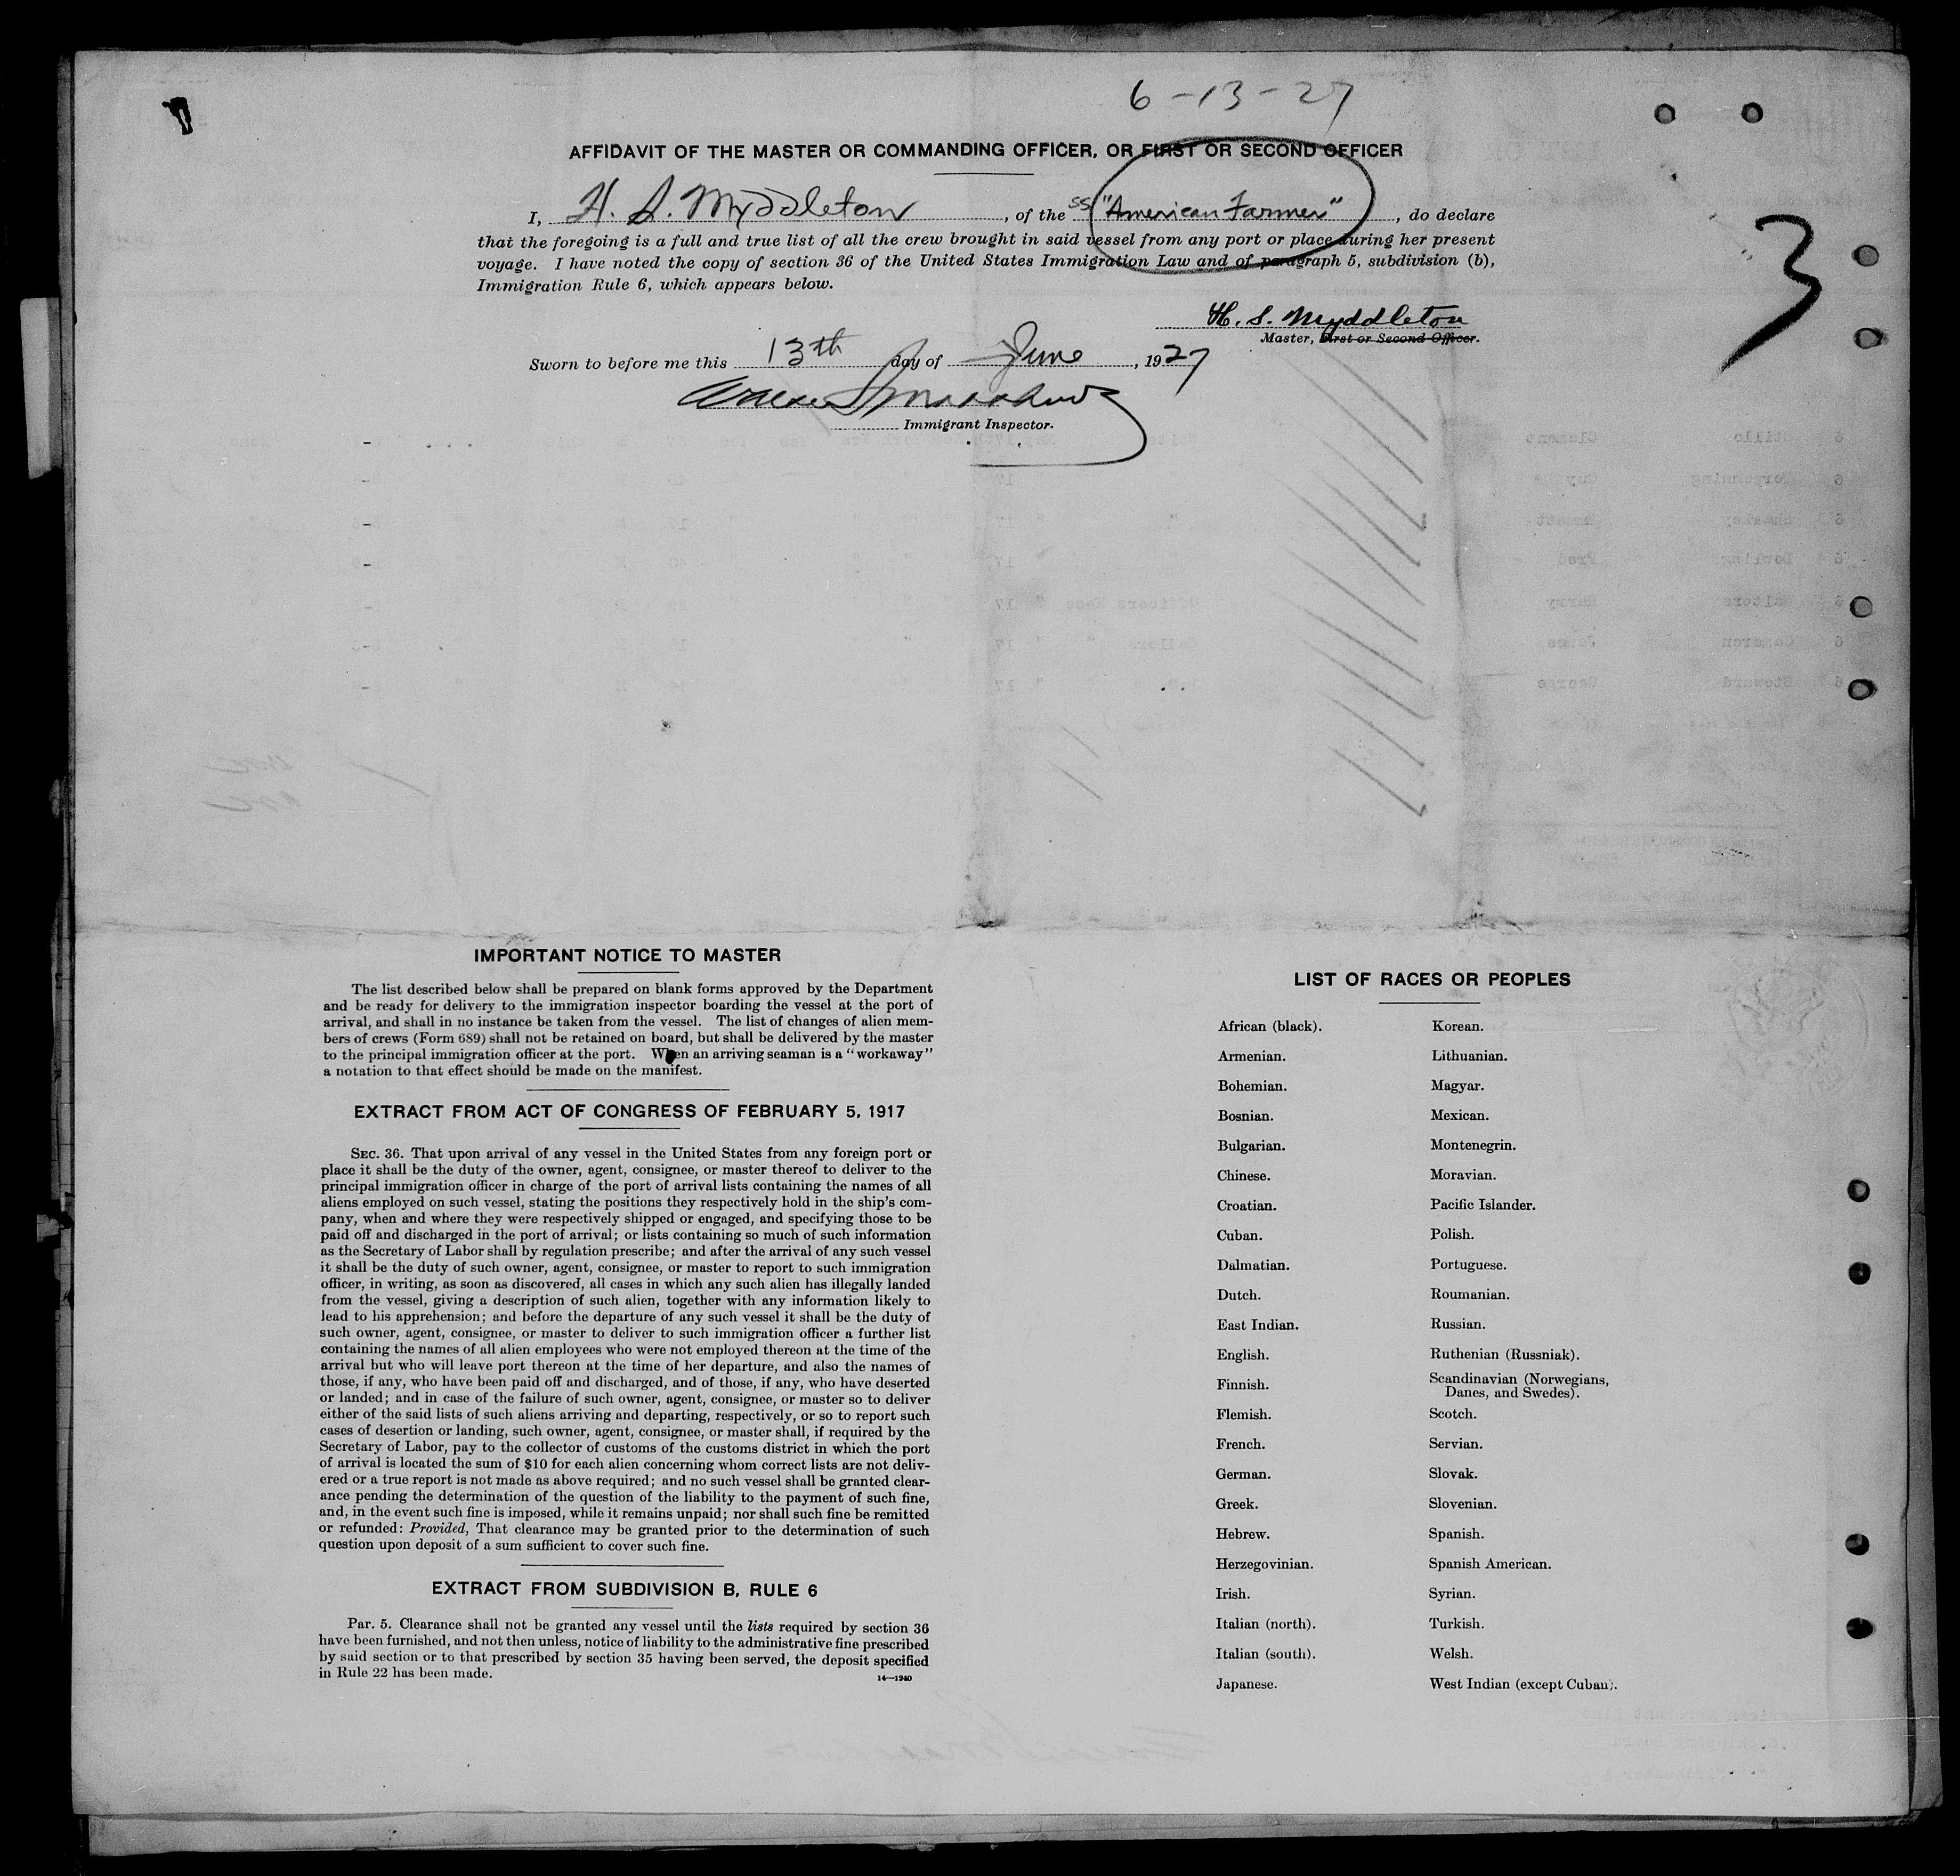 6-13-27
AFFIDAVIT OF THE MASTER OR COMMANDING OFFICER, OR FIRST OR SECOND OFFICER
I, H. S. Myddleton, of the SS "American Farmer", do declare
that the foregoing is a full and true list of all the crew brought in said vessel from any port or place during her present
voyage. I have noted the copy of section 36 of the United States Immigration Law and of paragraph 5, subdivision (b),
Immigration Rule 6, which appears below.
3
H. S. Myddleton
Master, First or Second Officer.
Sworn to before me this 13th day of June, 1927
Immigrant Inspector.
IMPORTANT NOTICE TO MASTER
The list described below shall be prepared on blank forms approved by the Department
and be ready for delivery to the immigration inspector boarding the vessel at the port of
arrival, and shall in no instance be taken from the vessel. The list of changes of alien mem-
bers of crews (Form 689) shall not be retained on board, but shall be delivered by the master
to the principal immigration officer at the port. When an arriving seaman is a "workaway"
a notation to that effect should be made on the manifest.
EXTRACT FROM ACT OF CONGRESS OF FEBRUARY 5, 1917
SEC. 36. That upon arrival of any vessel in the United States from any foreign port or
place it shall be the duty of the owner, agent, consignee, or master thereof to deliver to the
principal immigration officer in charge of the port of arrival lists containing the names of all
aliens employed on such vessel, stating the positions they respectively hold in the ship's com-
pany, when and where they were respectively shipped or engaged, and specifying those to be
paid off and discharged in the port of arrival; or lists containing so much of such information
as the Secretary of Labor shall by regulation prescribe; and after the arrival of any such vessel
it shall be the duty of such owner, agent, consignee, or master to report to such immigration
officer, in writing, as soon as discovered, all cases in which any such alien has illegally landed
from the vessel, giving a description of such alien, together with any information likely to
lead to his apprehension; and before the departure of any such vessel it shall be the duty of
such owner, agent, consignee, or master to deliver to such immigration officer a further list
containing the names of all alien employees who were not employed thereon at the time of the
arrival but who will leave port thereon at the time of her departure, and also the names of
those, if any, who have been paid off and discharged, and of those, if any, who have deserted
or landed; and in case of the failure of such owner, agent, consignee, or master so to deliver
either of the said lists of such aliens arriving and departing, respectively, or so to report such
cases of desertion or landing, such owner, agent, consignee, or master shall, if required by the
Secretary of Labor, pay to the collector of customs of the customs district in which the port
of arrival is located the sum of $10 for each alien concerning whom correct lists are not deliv-
ered or a true report is not made as above required; and no such vessel shall be granted clear-
ance pending the determination of the question of the liability to the payment of such fine,
and, in the event such fine is imposed, while it remains unpaid; nor shall such fine be remitted
or refunded: Provided, That clearance may be granted prior to the determination of such
question upon deposit of a sum sufficient to cover such fine.
EXTRACT FROM SUBDIVISION B, RULE 6
Par. 5. Clearance shall not be granted any vessel until the lists required by section 36
have been furnished, and not then unless, notice of liability to the administrative fine prescribed
by said section or to that prescribed by section 35 having been served, the deposit specified
in Rule 22 has been made.
14—1240
LIST OF RACES OR PEOPLES
African (black).
Armenian.
Bohemian.
Bosnian.
Bulgarian.
Chinese.
Croatian.
Cuban.
Dalmatian.
Dutch.
East Indian.
English.
Finnish.
Flemish.
French.
German.
Greek.
Hebrew.
Herzegovinian.
Irish.
Italian (north).
Italian (south).
Japanese.
Korean.
Lithuanian.
Magyar.
Mexican.
Montenegrin.
Moravian.
Pacific Islander.
Polish.
Portuguese.
Roumanian.
Russian.
Ruthenian (Russniak).
Scandinavian (Norwegians,
Danes, and Swedes).
Scotch.
Servian.
Slovak.
Slovenian.
Spanish.
Spanish American.
Syrian.
Turkish.
Welsh.
West Indian (except Cuban).